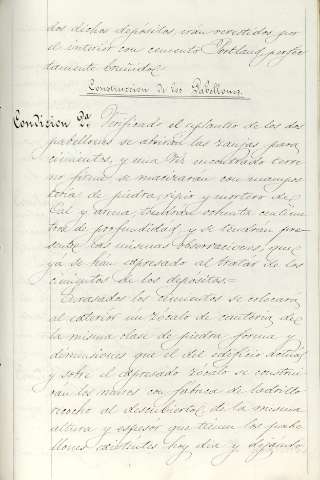 dos dichos depósitos, irán revestidos por
el interior con cemento Portland, perfec
tamente bruñidos
Construcción de los Pabellones.
Condición 2ª Verificado el replanteo de los dos
pabellones se abrirán las zanjas para
cimientos, y una vez encontrado terre
no firme se macizarán con mampos
tería de piedra, ripio y mortero de
Cal y arena, tendrán ochenta centíme
tros de profundidad y se tendrán pre
sente las mismas observaciones, que
ya se han expresado al tratar de los
cimientos de los depósitos=
Enrasados los cimientos se colocará
al exterior un zócalo de cantería de
la misma clase de piedra, forma y
dimensiones que el del edificio actual
y sobre el expresado zócalo se construi
rán los muros con fábrica de ladrillo
recocho al descubierto, de la misma
altura y espesor que tienen los pabe
llones existentes hoy día y dejando,